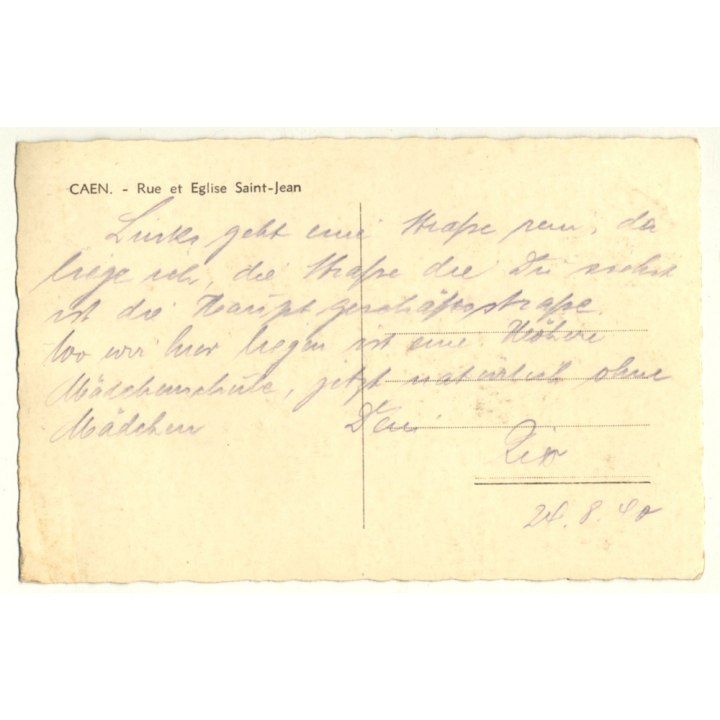 CAEN. - Rue et Eglise Saint-Jean
Links geht eine Straße rein, da
liege ich, die Straße die Du siehst
ist die Hauptgeschäftsstraße.
Wo wir hier liegen ist eine Höhere
Mädchenschule, jetzt natürlich ohne
Mädchen Dein
24.8.40